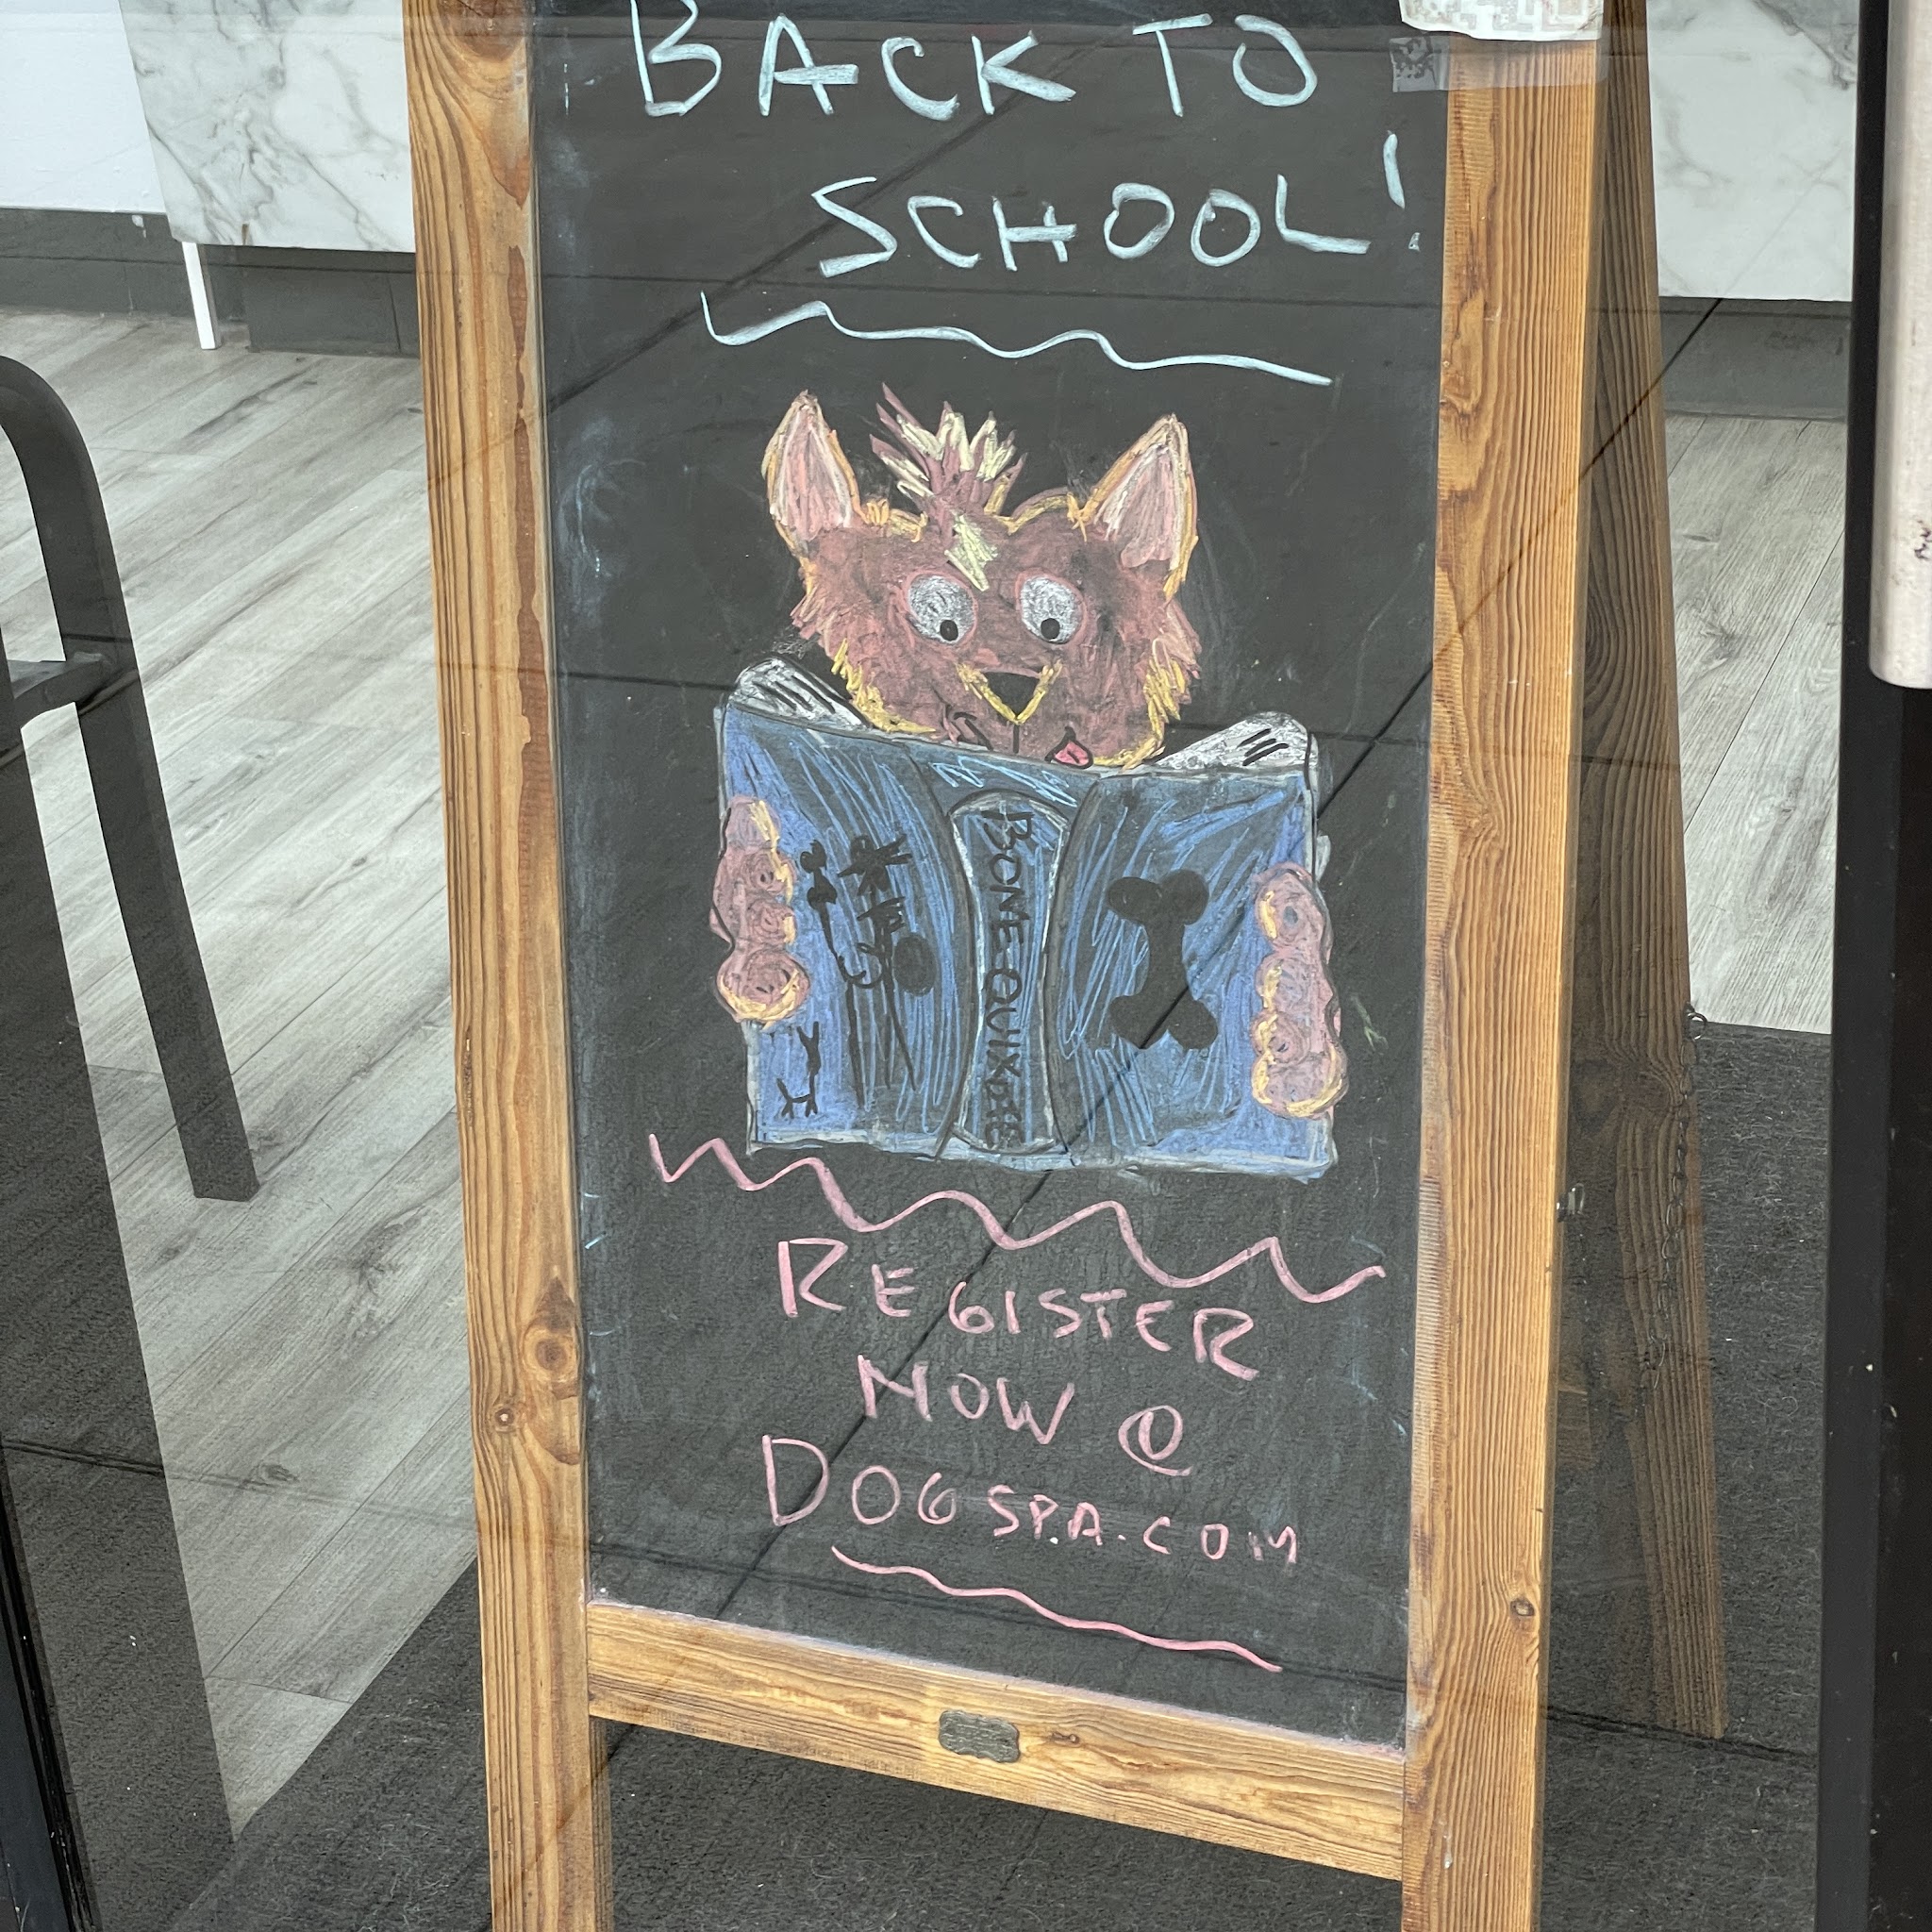 BACK TO
SCHOOL!
BONE-QUIXOTE
REGISTER
NOW @
DOGSPA.COM